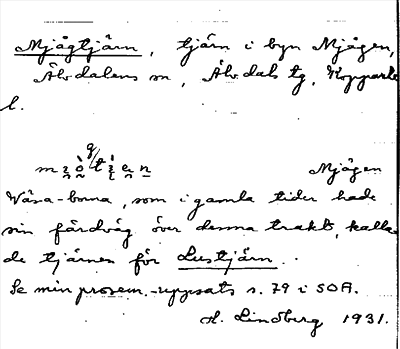 Mjågtjärn, tjärn i byn Mjågen,
Älvdalens sn, Älvdals tg, Kopparb.
l.
Mjågen
Våsa-borna, som i gamla tider hade
sin färdväg över denna trakt, kalla-
de tjärnen för Lustjärn.
Se min prosem.-uppsats s. 79 i SOA.
H. Lindberg 1931.